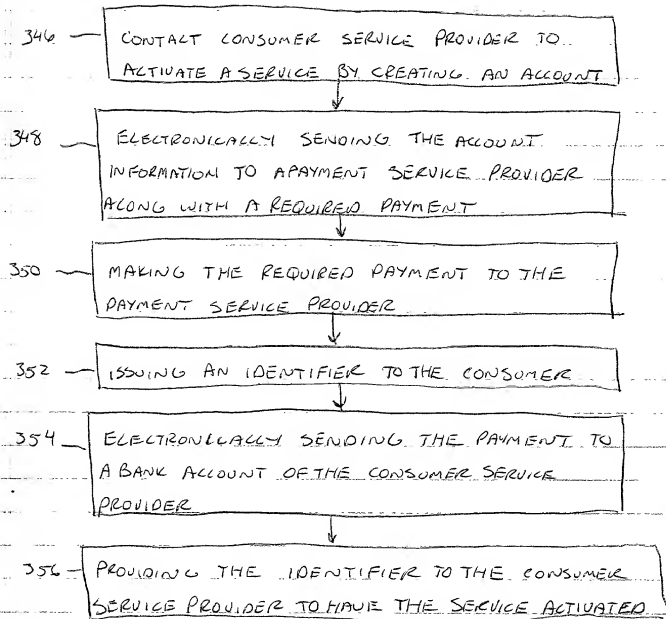 346
CONTACT CONSUMER SERVICE PROVIDER TO
ACTIVATE A SERVICE BY CREATING AN ACCOUNT
348
ELECTRONICALLY SENDING THE ACCOUNT
INFORMATION TO APAYMENT SERVICE PROVIDER
ALONG WITH A REQUIRED PAYMENT
350
MAKING THE REQUIRED PAYMENT TO THE
PAYMENT SERVICE PROVIDER
352
ISSUING AN IDENTIFIER TO THE CONSUMER
354
ELECTRONICALLY SENDING THE PAYMENT TO
A BANK ACCOUNT OF THE CONSUMER SERVICE
PROVIDER
356
PROVIDING THE IDENTIFIER TO THE CONSUMER
SERVICE PROVIDER TO HAVE THE SERVICE ACTIVATED